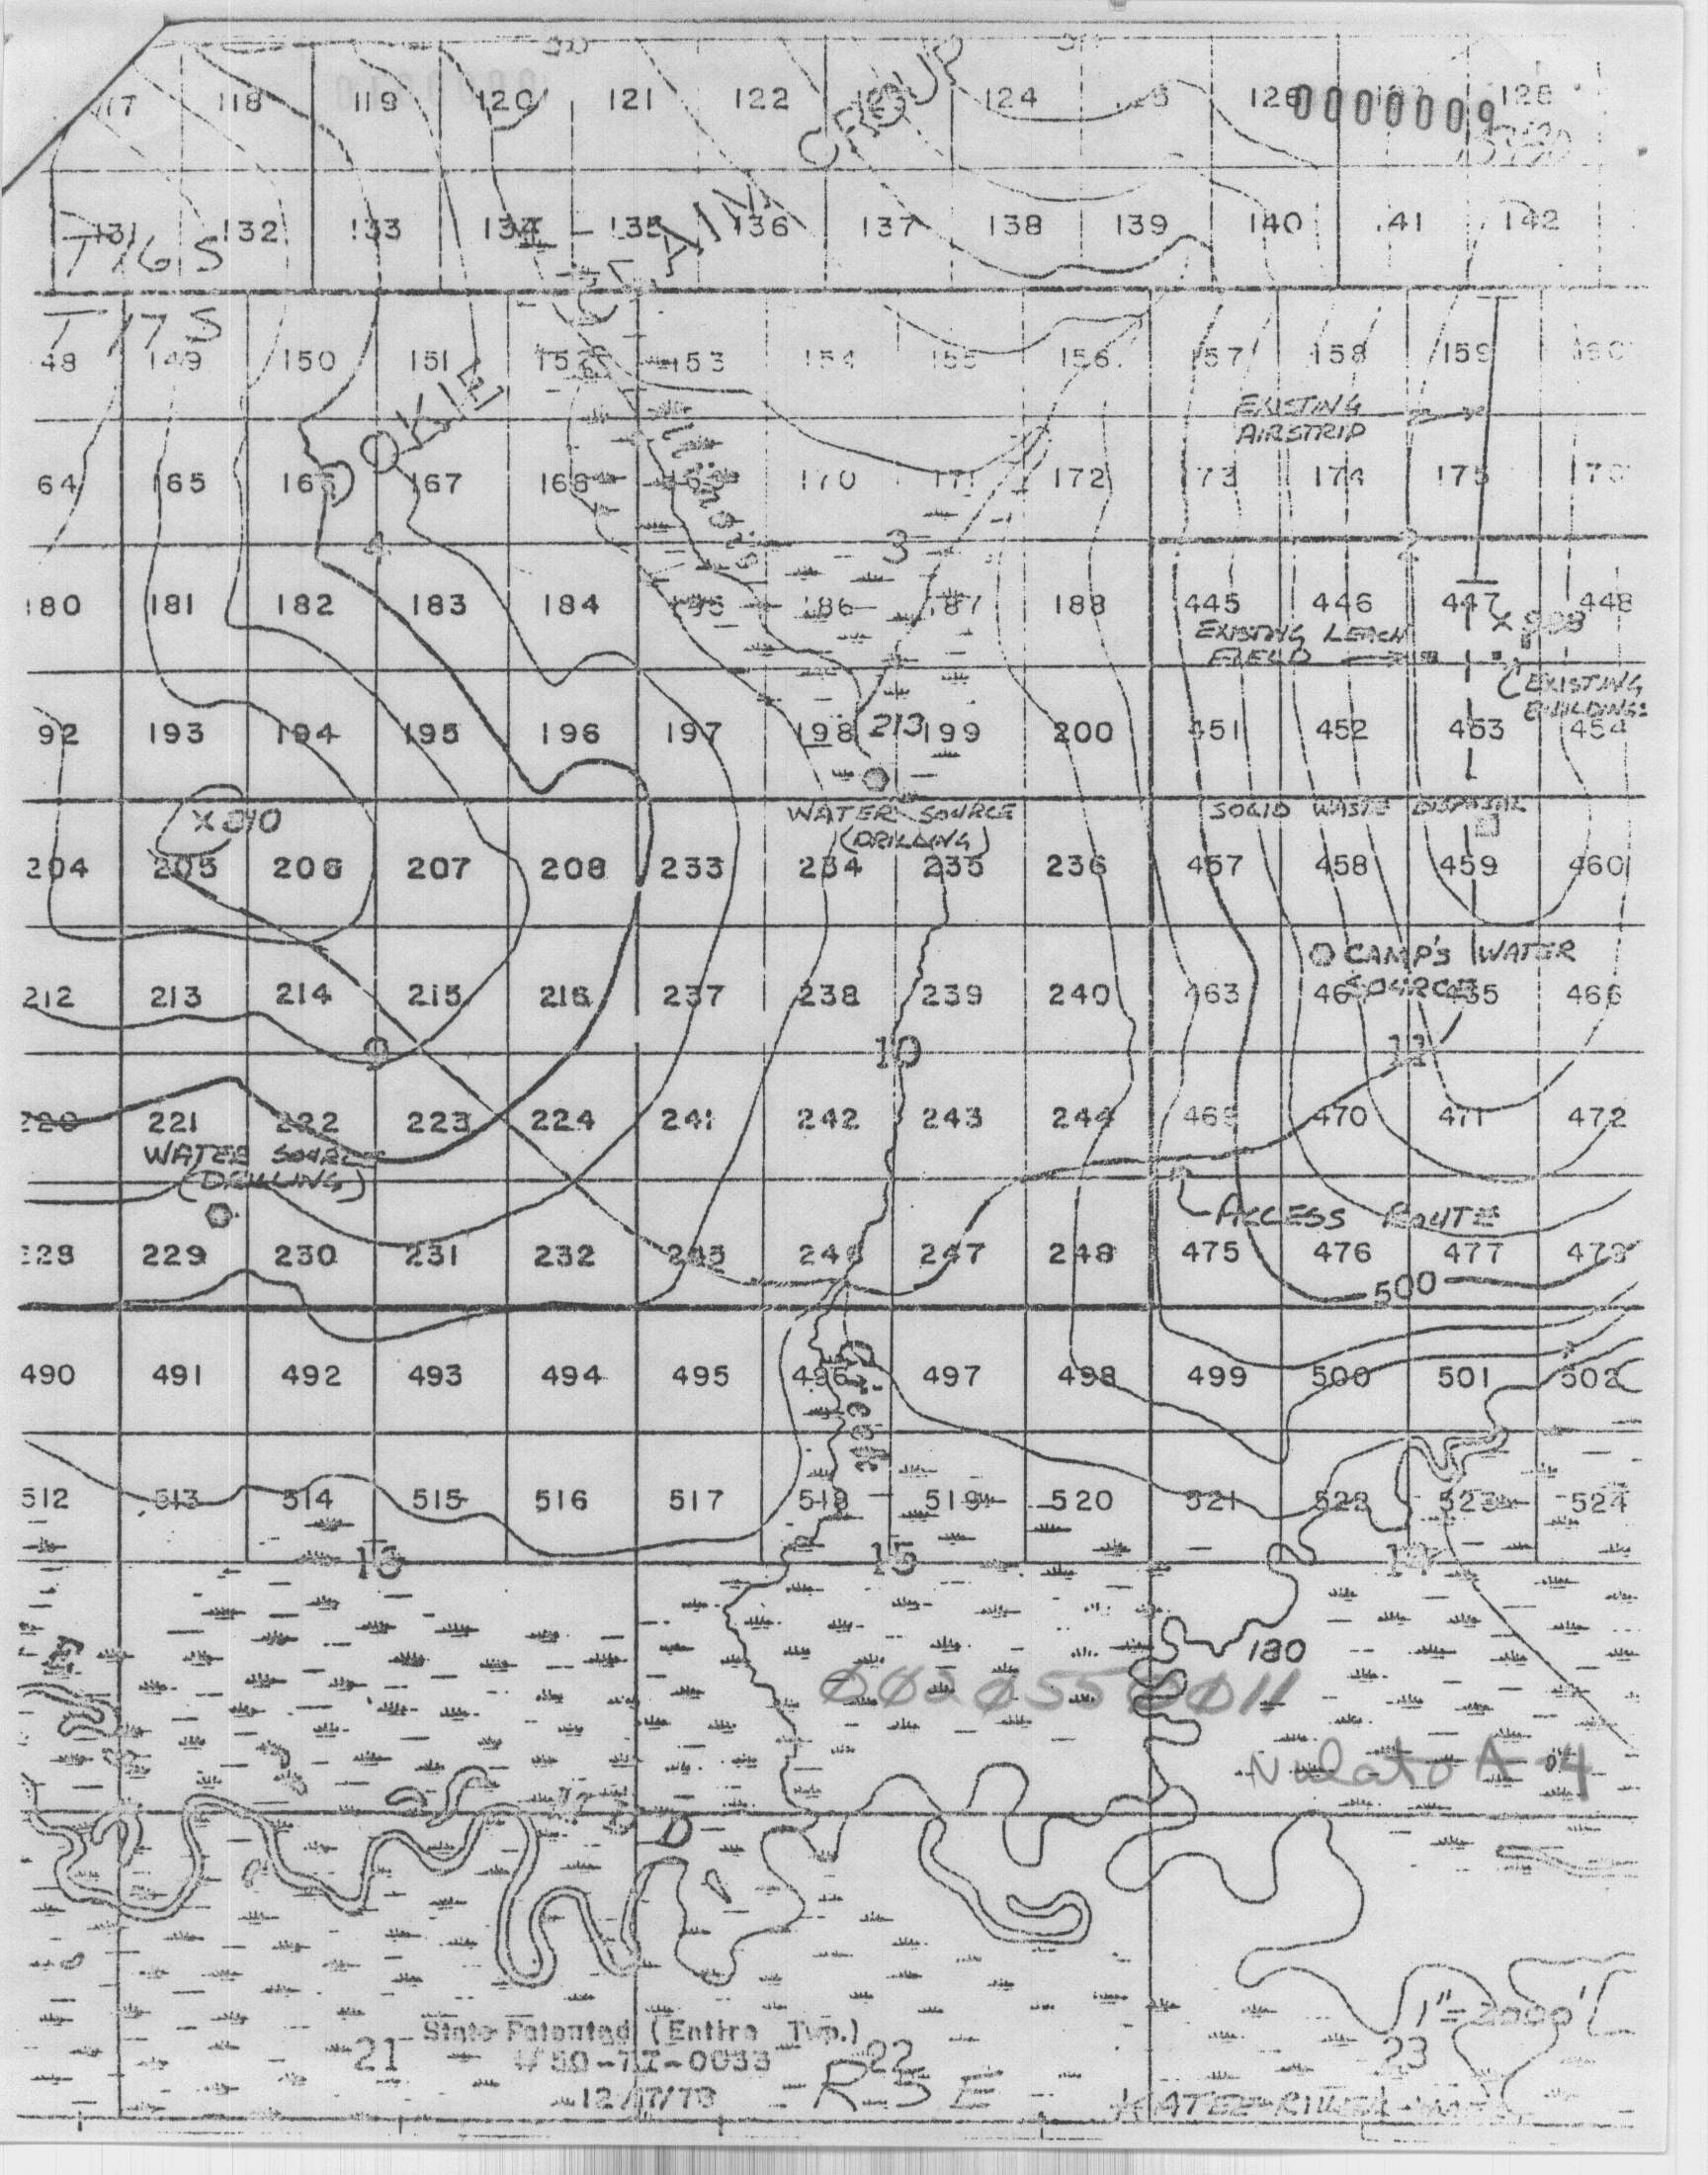 117 118 119 120 121 122 124 126 128
0000009
CROUP
131 132 133 134 135 136 137 138 139 140 141 142
T 16 S
CLAIM
T 17 S
48 149 150 151 152 153 154 155 156 157 158 159 160
KIE
EXISTING
AIRSTRIP
64 165 166 167 168 169 170 171 172 173 174 175 176
Illinois
4 3 2
180 181 182 183 184 185 186 187 188 445 446 447 448
X 998
EXISTING LEACH
FIELD
EXISTING
BUILDINGS
92 193 194 195 196 197 198 213 199 200 451 452 453 454
X 810
WATER SOURCE
(DRILLING)
SOLID WASTE DISPOSAL
204 205 206 207 208 233 234 235 236 457 458 459 460
CAMP'S WATER
SOURCE
212 213 214 215 216 237 238 239 240 463 465 466
9 10 11
220 221 222 223 224 241 242 243 244 469 470 471 472
WATER SOURCE
(DRILLING)
ACCESS ROUTE
228 229 230 231 232 245 246 247 248 475 476 477 478
500
490 491 492 493 494 495 496 497 498 499 500 501 502
Creek
512 513 514 515 516 517 518 519 520 521 522 523 524
16 15 14
180
Nulato A-4
D
1"=2000'
State Patented (Entire Twp.)
21 22 23
12/17/73
R 5 E